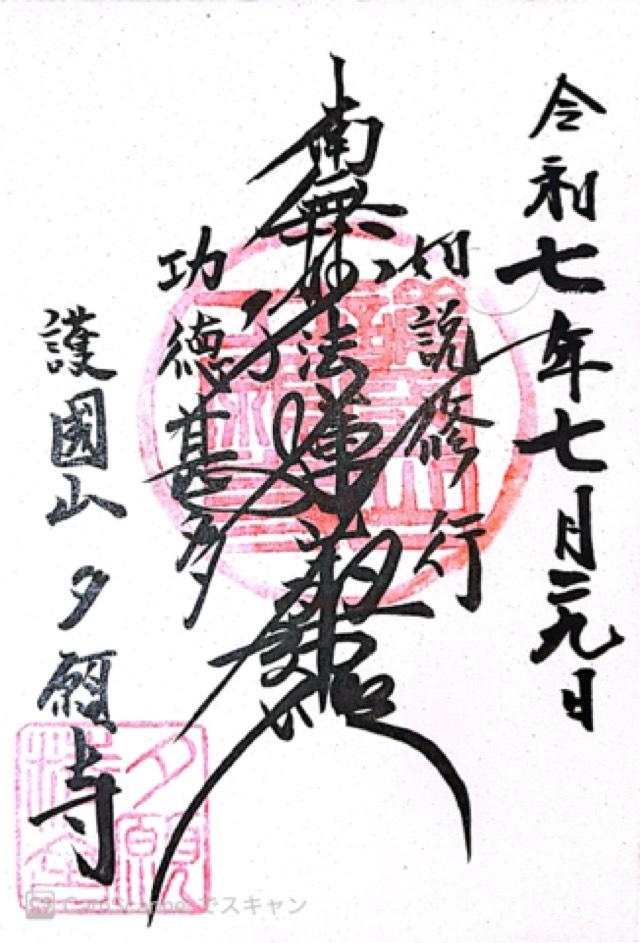 令和七年七月二九日
如説修行
南無妙法蓮華經
功徳甚多
護國山 夕顔寺
CamScannerでスキャン